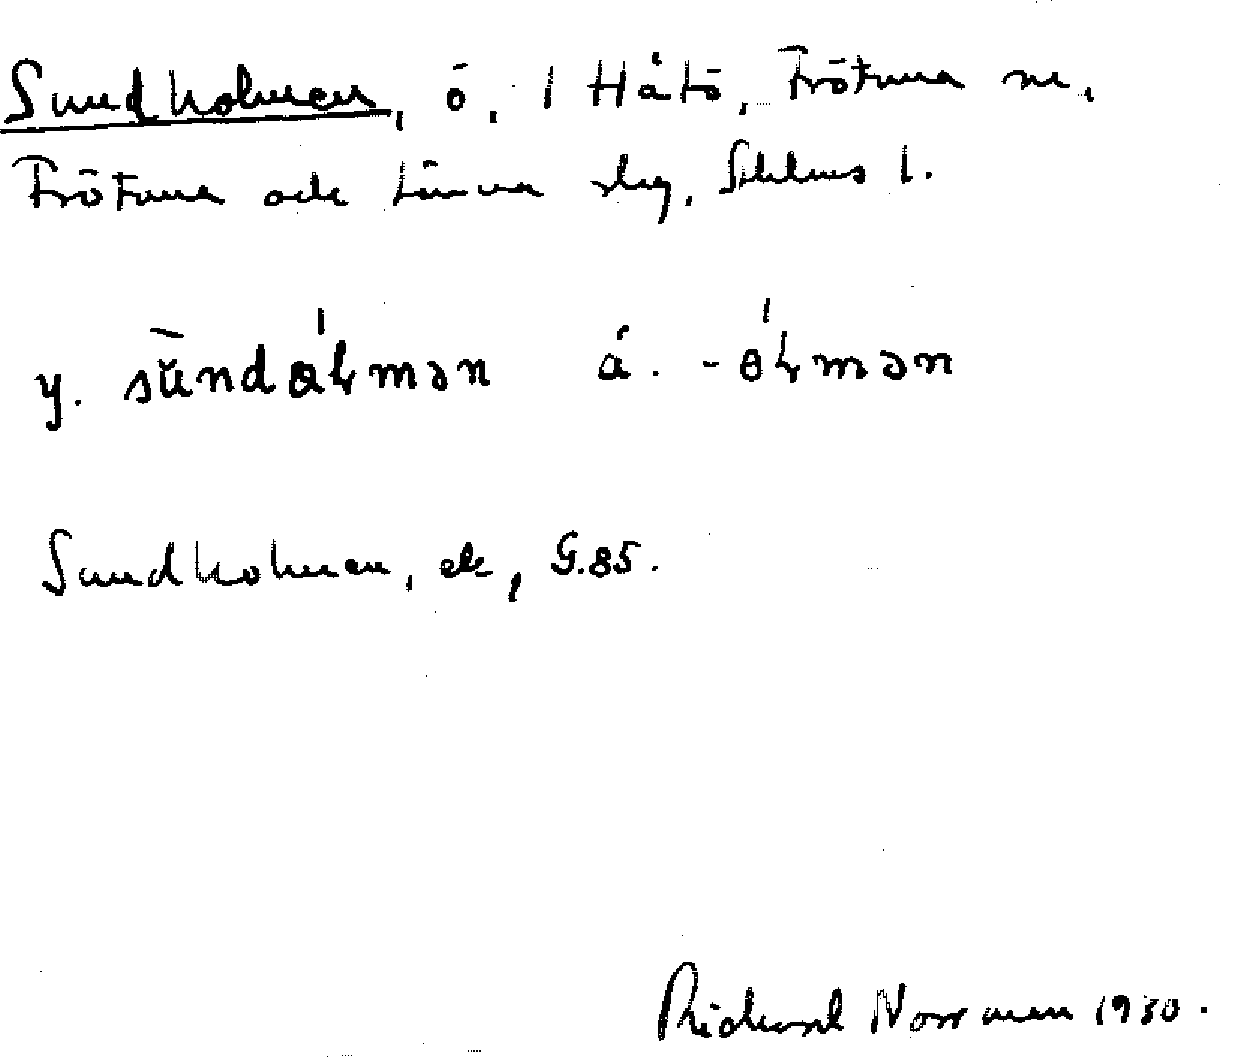 Sundholmen, ö, 1 Håtö, Frötuna sn,
Frötuna och Länna slg, Sthlms l.
y. sŭndɵ́ɫmən á. -ɵ́ɫmən
Sundholmen, ek, G.85.
Richard Norrman 1930.